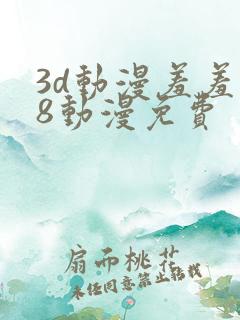 3d動漫羞羞
8動漫免費
扇而桃花
未经同意禁止转载